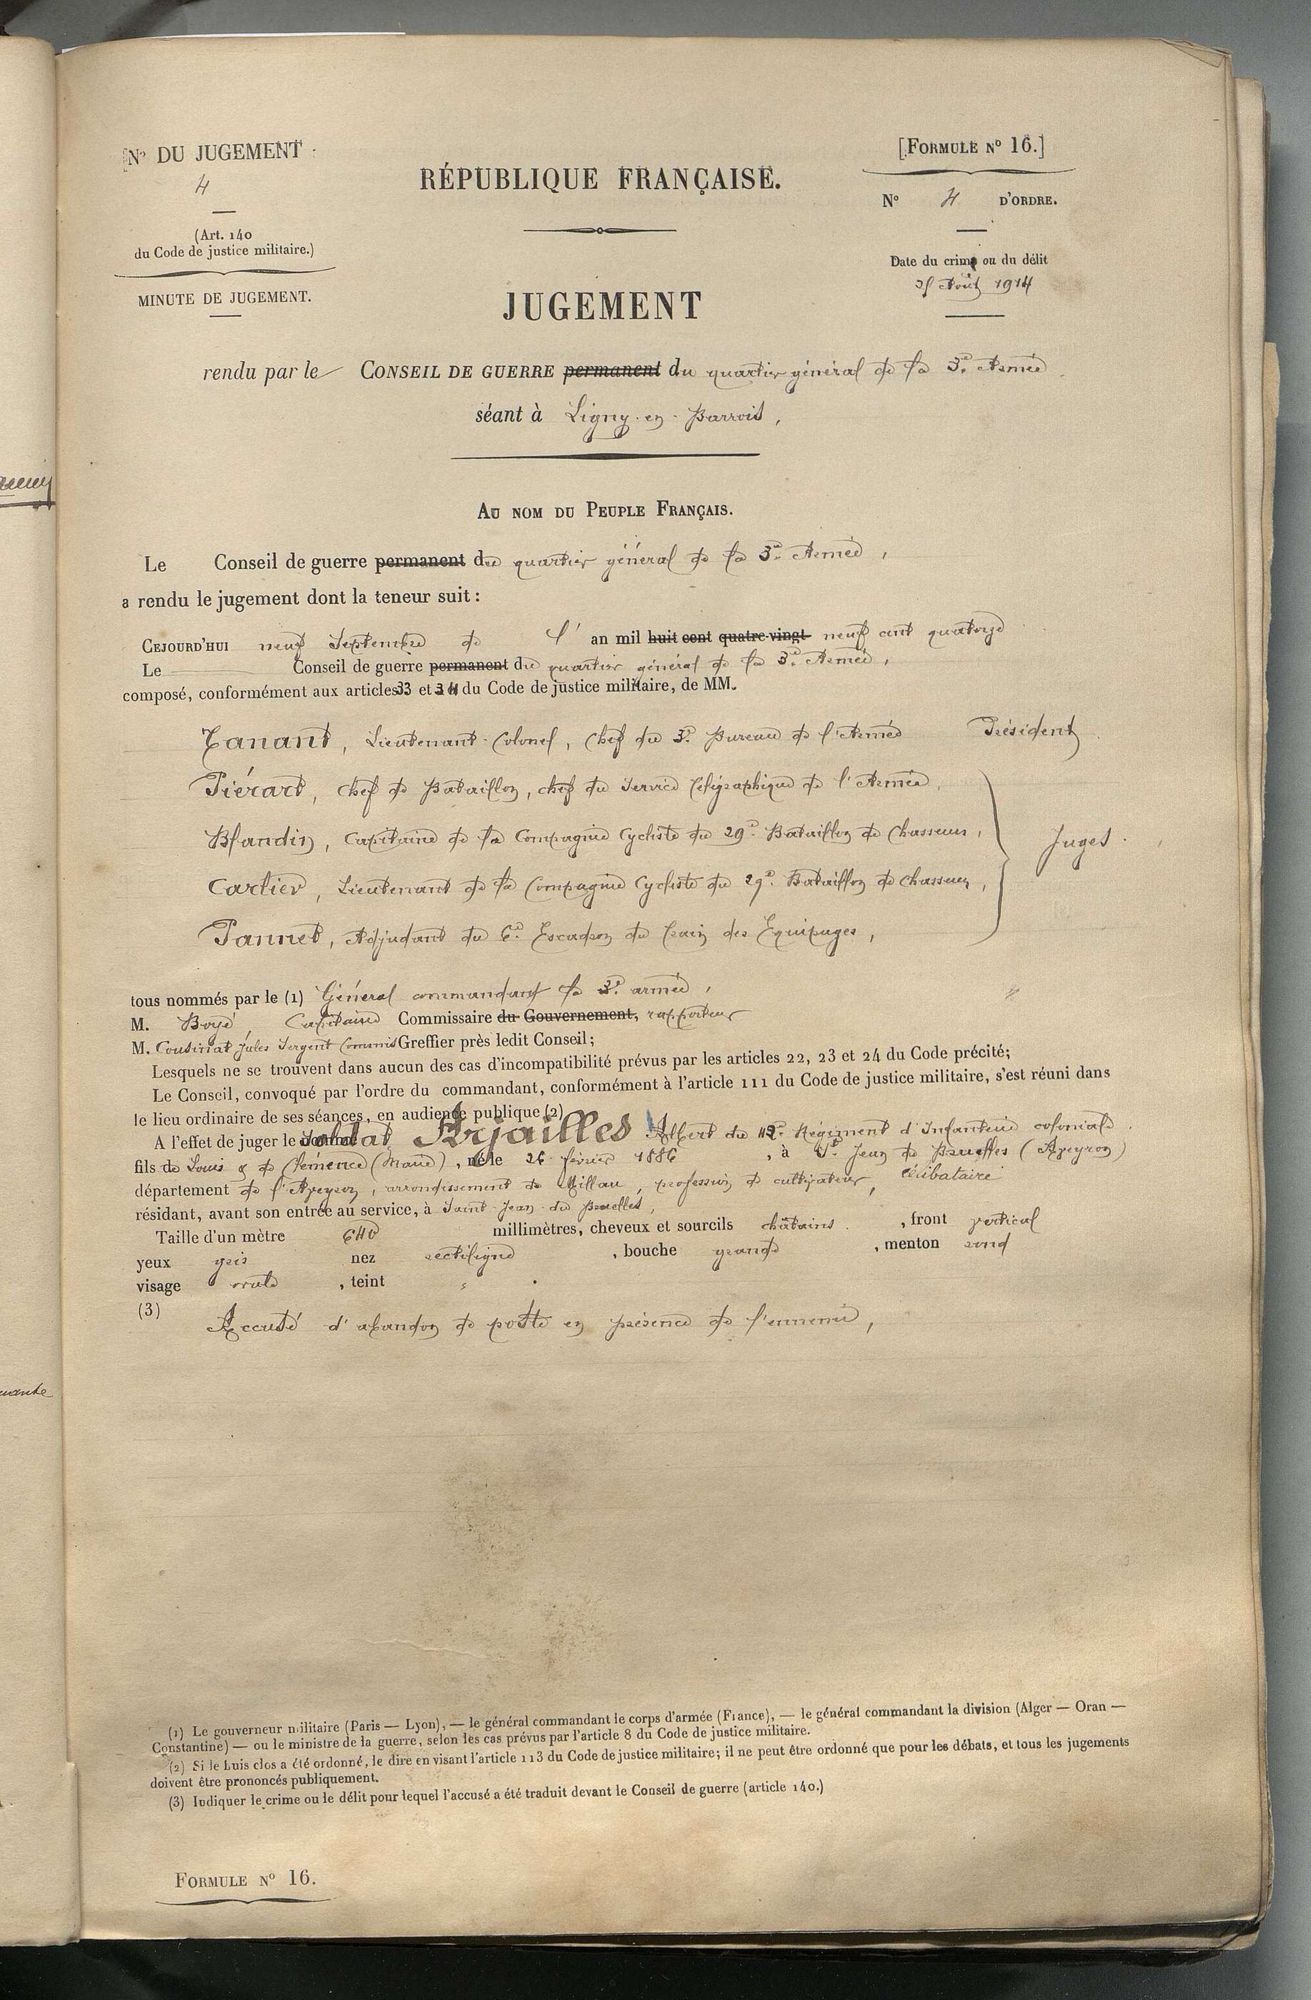 N° DU JUGEMENT
4
(Art. 140
du Code de justice militaire.)
MINUTE DE JUGEMENT.
RÉPUBLIQUE FRANÇAISE.
[FORMULE N° 16.]
N° 4 D'ORDRE.
Date du crime ou du délit
Août 1914
JUGEMENT
rendu par le CONSEIL DE GUERRE permanent du quartier général de la 3e Armée
séant à Ligny-en-Barrois,
AU NOM DU PEUPLE FRANÇAIS.
Le Conseil de guerre permanent du quartier général de la 3e Armée,
a rendu le jugement dont la teneur suit :
CEJOURD'HUI neuf Septembre de l'an mil huit cent quatre-vingt neuf cent quatorze
Le Conseil de guerre permanent du quartier général de la 3e Armée,
composé, conformément aux articles 33 et 34 du Code de justice militaire, de MM.
Tanant, Lieutenant-Colonel, Chef du 3e Bureau de l'Armée Président
Piérart, Chef de Bataillon, chef du Service télégraphique de l'Armée,
Blandin, Capitaine de la Compagnie Cycliste du 29e Bataillon de Chasseurs,
Juges.
Cartier, Lieutenant de la Compagnie Cycliste du 29e Bataillon de Chasseurs,
Pannet, Adjudant du 6e Escadron du train des Equipages,
tous nommés par le (1) Général commandant la 3e armée,
M. Boyé, Capitaine Commissaire du Gouvernement, rapporteur
M. Cousinat Jules Sergent Commis Greffier près ledit Conseil ;
Lesquels ne se trouvent dans aucun des cas d'incompatibilité prévus par les articles 22, 23 et 24 du Code précité;
Le Conseil, convoqué par l'ordre du commandant, conformément à l'article 111 du Code de justice militaire, s'est réuni dans
le lieu ordinaire de ses séances, en audience publique (2)
A l'effet de juger le soldat Arjailles Albert du Régiment d'Infanterie coloniale
fils de Louis & de Clémence (Maurel), né le 26 février 1886, à St Jean de Bruelles (Aveyron)
département de l'Aveyron, arrondissement de Millau, profession de cultivateur, célibataire
résidant, avant son entrée au service, à Saint-Jean-du-Bruelles,
Taille d'un mètre 640 millimètres, cheveux et sourcils châtains, front vertical
yeux gris nez rectiligne, bouche grande, menton rond
visage ovale, teint "
(3) Accusé d'abandon de poste en présence de l'ennemi,
(1) Le gouverneur militaire (Paris — Lyon), — le général commandant le corps d'armée (France), — le général commandant la division (Alger — Oran —
Constantine) — ou le ministre de la guerre, selon les cas prévus par l'article 8 du Code de justice militaire.
(2) Si le huis clos a été ordonné, le dire en visant l'article 113 du Code de justice militaire; il ne peut être ordonné que pour les débats, et tous les jugements
doivent être prononcés publiquement.
(3) Indiquer le crime ou le délit pour lequel l'accusé a été traduit devant le Conseil de guerre (article 140.)
FORMULE N° 16.